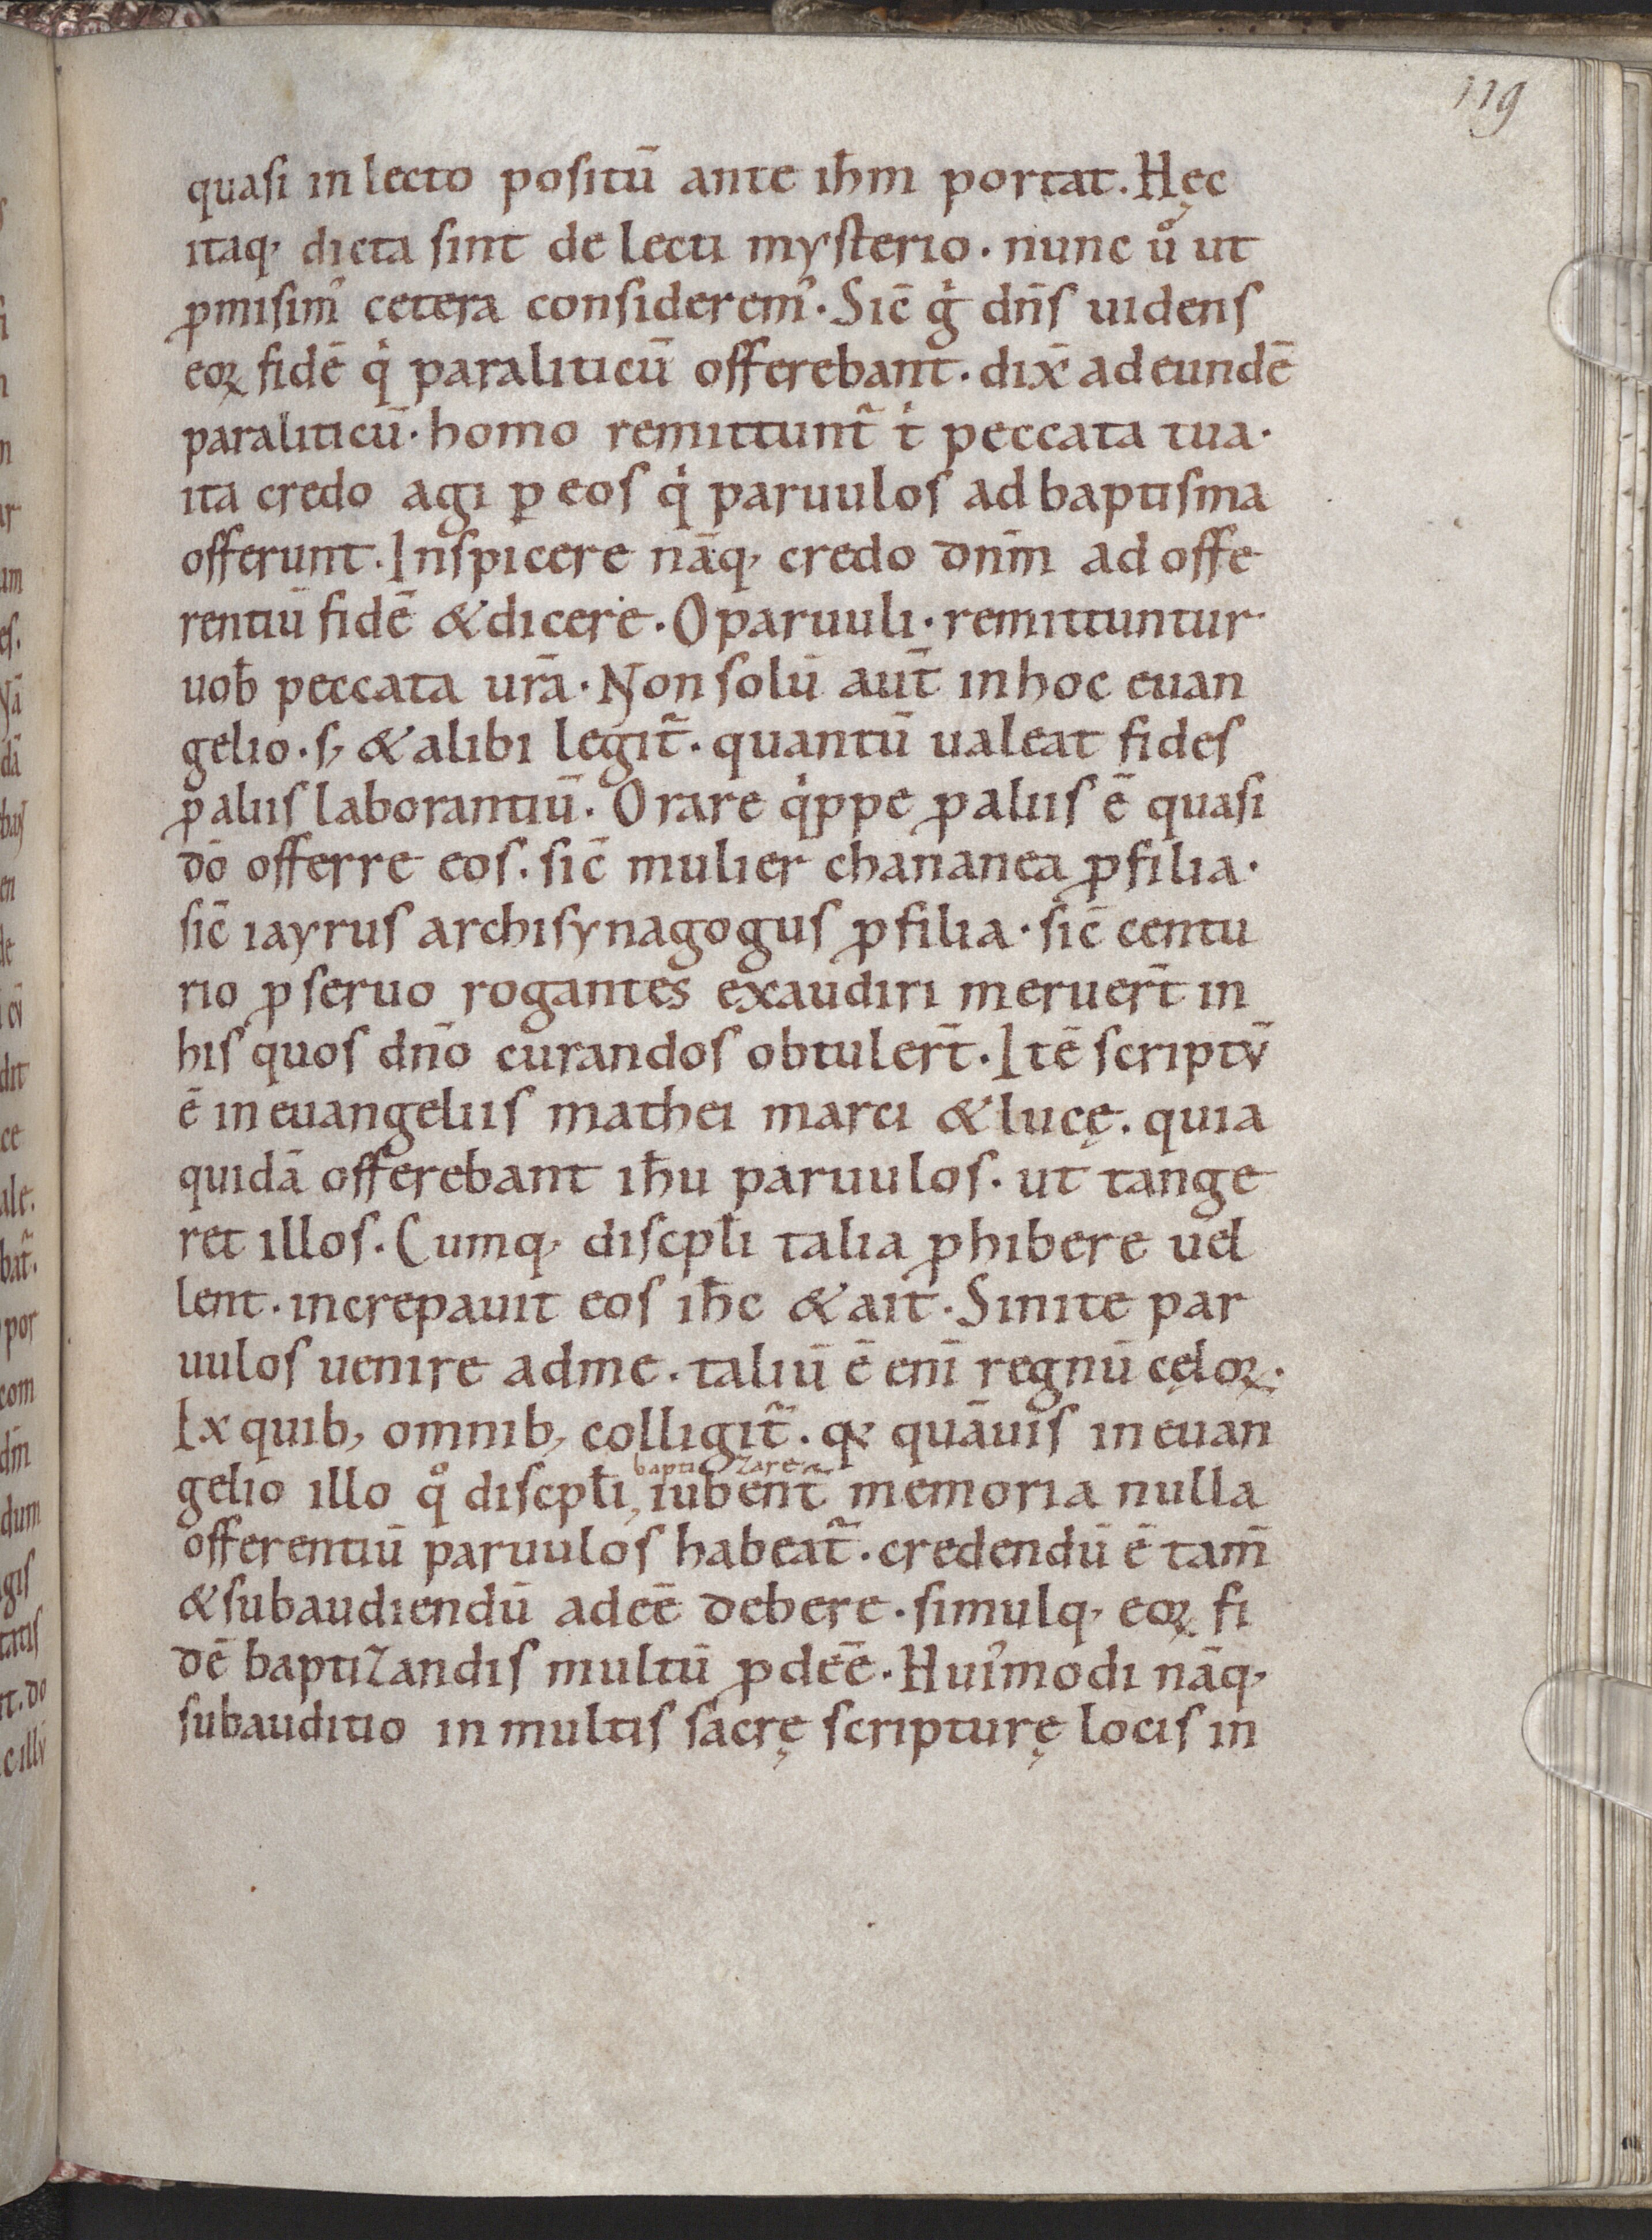 119
quasi in lecto positū ante ih̄m portat. Hęc
itaq; dicta sint de lecti mysterio. nunc ů ut
ꝓmisim᾽ cetera considerem᾽. Sic̄ g̍ dn̄s uidens
eoꝝ fidē q̍ paraliticū offerebant. dix̄ ad eundē
paraliticū. homo remittunt̃ t̍ peccata tua.
ita credo agi ꝑ eos q̍ paruulos ad baptisma
offerunt. Inspicere nāq; credo dn̄m ad offe
rentiū fidē & dicere. O paruuli. remittuntur
uob̄ peccata ur̄a. Non solū aut̄ in hoc euan
gelio. s; & alibi legit̃. quantū ualeat fides
ꝓ aliis laborantiū. Orare q̍ppe ꝓ aliis ē quasi
dō offerre eos. sic̄ mulier chananea ꝓ filia.
sic̄ iayrus archisynagogus ꝓ filia. sic̄ centu
rio ꝓ seruo rogantes exaudiri meruer̄t in
his quos dn̄o curandos obtuler̄t. Itē scriptv̄
ē in euangeliis mathei marci & lucę. quia
quidā offerebant ih̄u paruulos. ut tange
ret illos. Cumq; discpl̄i talia ꝓhibere uel
lent. increpauit eos ih̄c & ait. Sinite par
uulos uenire ad me. taliū ē enī regnū cęloꝝ.
Ex quib; omnib; colligit̃. qꝫ quāuis in euan
gelio illo q̊ discpl̄i, baptizare iubent̃ memoria nulla
offerentiū paruulos habeat̃. credendū ē tam̄
& subaudiendū adeē debere. simulq; eoꝝ fi
dē baptizandis multū ꝓdeē. Hui᾽modi nāq;
subauditio in multis sacrę scripturę locis in